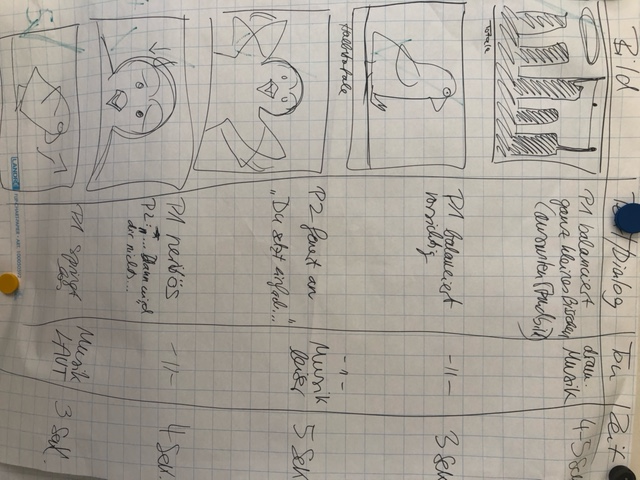 Bild
Text/Dialog
Ton
Zeit
Totale
P1 balanciert
ganz kleines bisschen
dram.
Musik
4-5 Sek
Halbtotale
P1 balanciert
vorsichtig
-"-
3 Sek
P2 feuert an
"Du setzt einfach..."
-"-
Musik
leiser
5 Sek
P1 nervös
P2: "... Dann wird
dir nichts...
-"-
4 Sek.
P1 springt
los
Musik
LAUT
3 Sek.